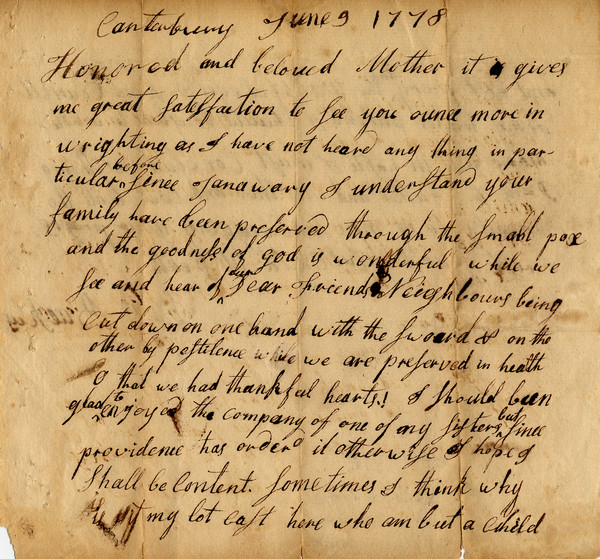 Canterbury June 9 1778
Honored and beloved Mother it gives
me great satesfaction to see you ounce more in
wrighting as I have not heard any thing in par-
ticular before since Janawary I understand your
family have been preserved through the small pox
and the goodness of god is wonderful while we
see and hear of our Dear Friends & Neighbours being
cut down on one hand with the sword & on the
other by pestilence while we are preserved in health
O that we had thankful hearts! I should been
glad to enjoyed the company of one of my sisters but since
providence has orderd it otherwise I hope I
shall be Content. Sometimes I think why
my lot cast here who am but a child